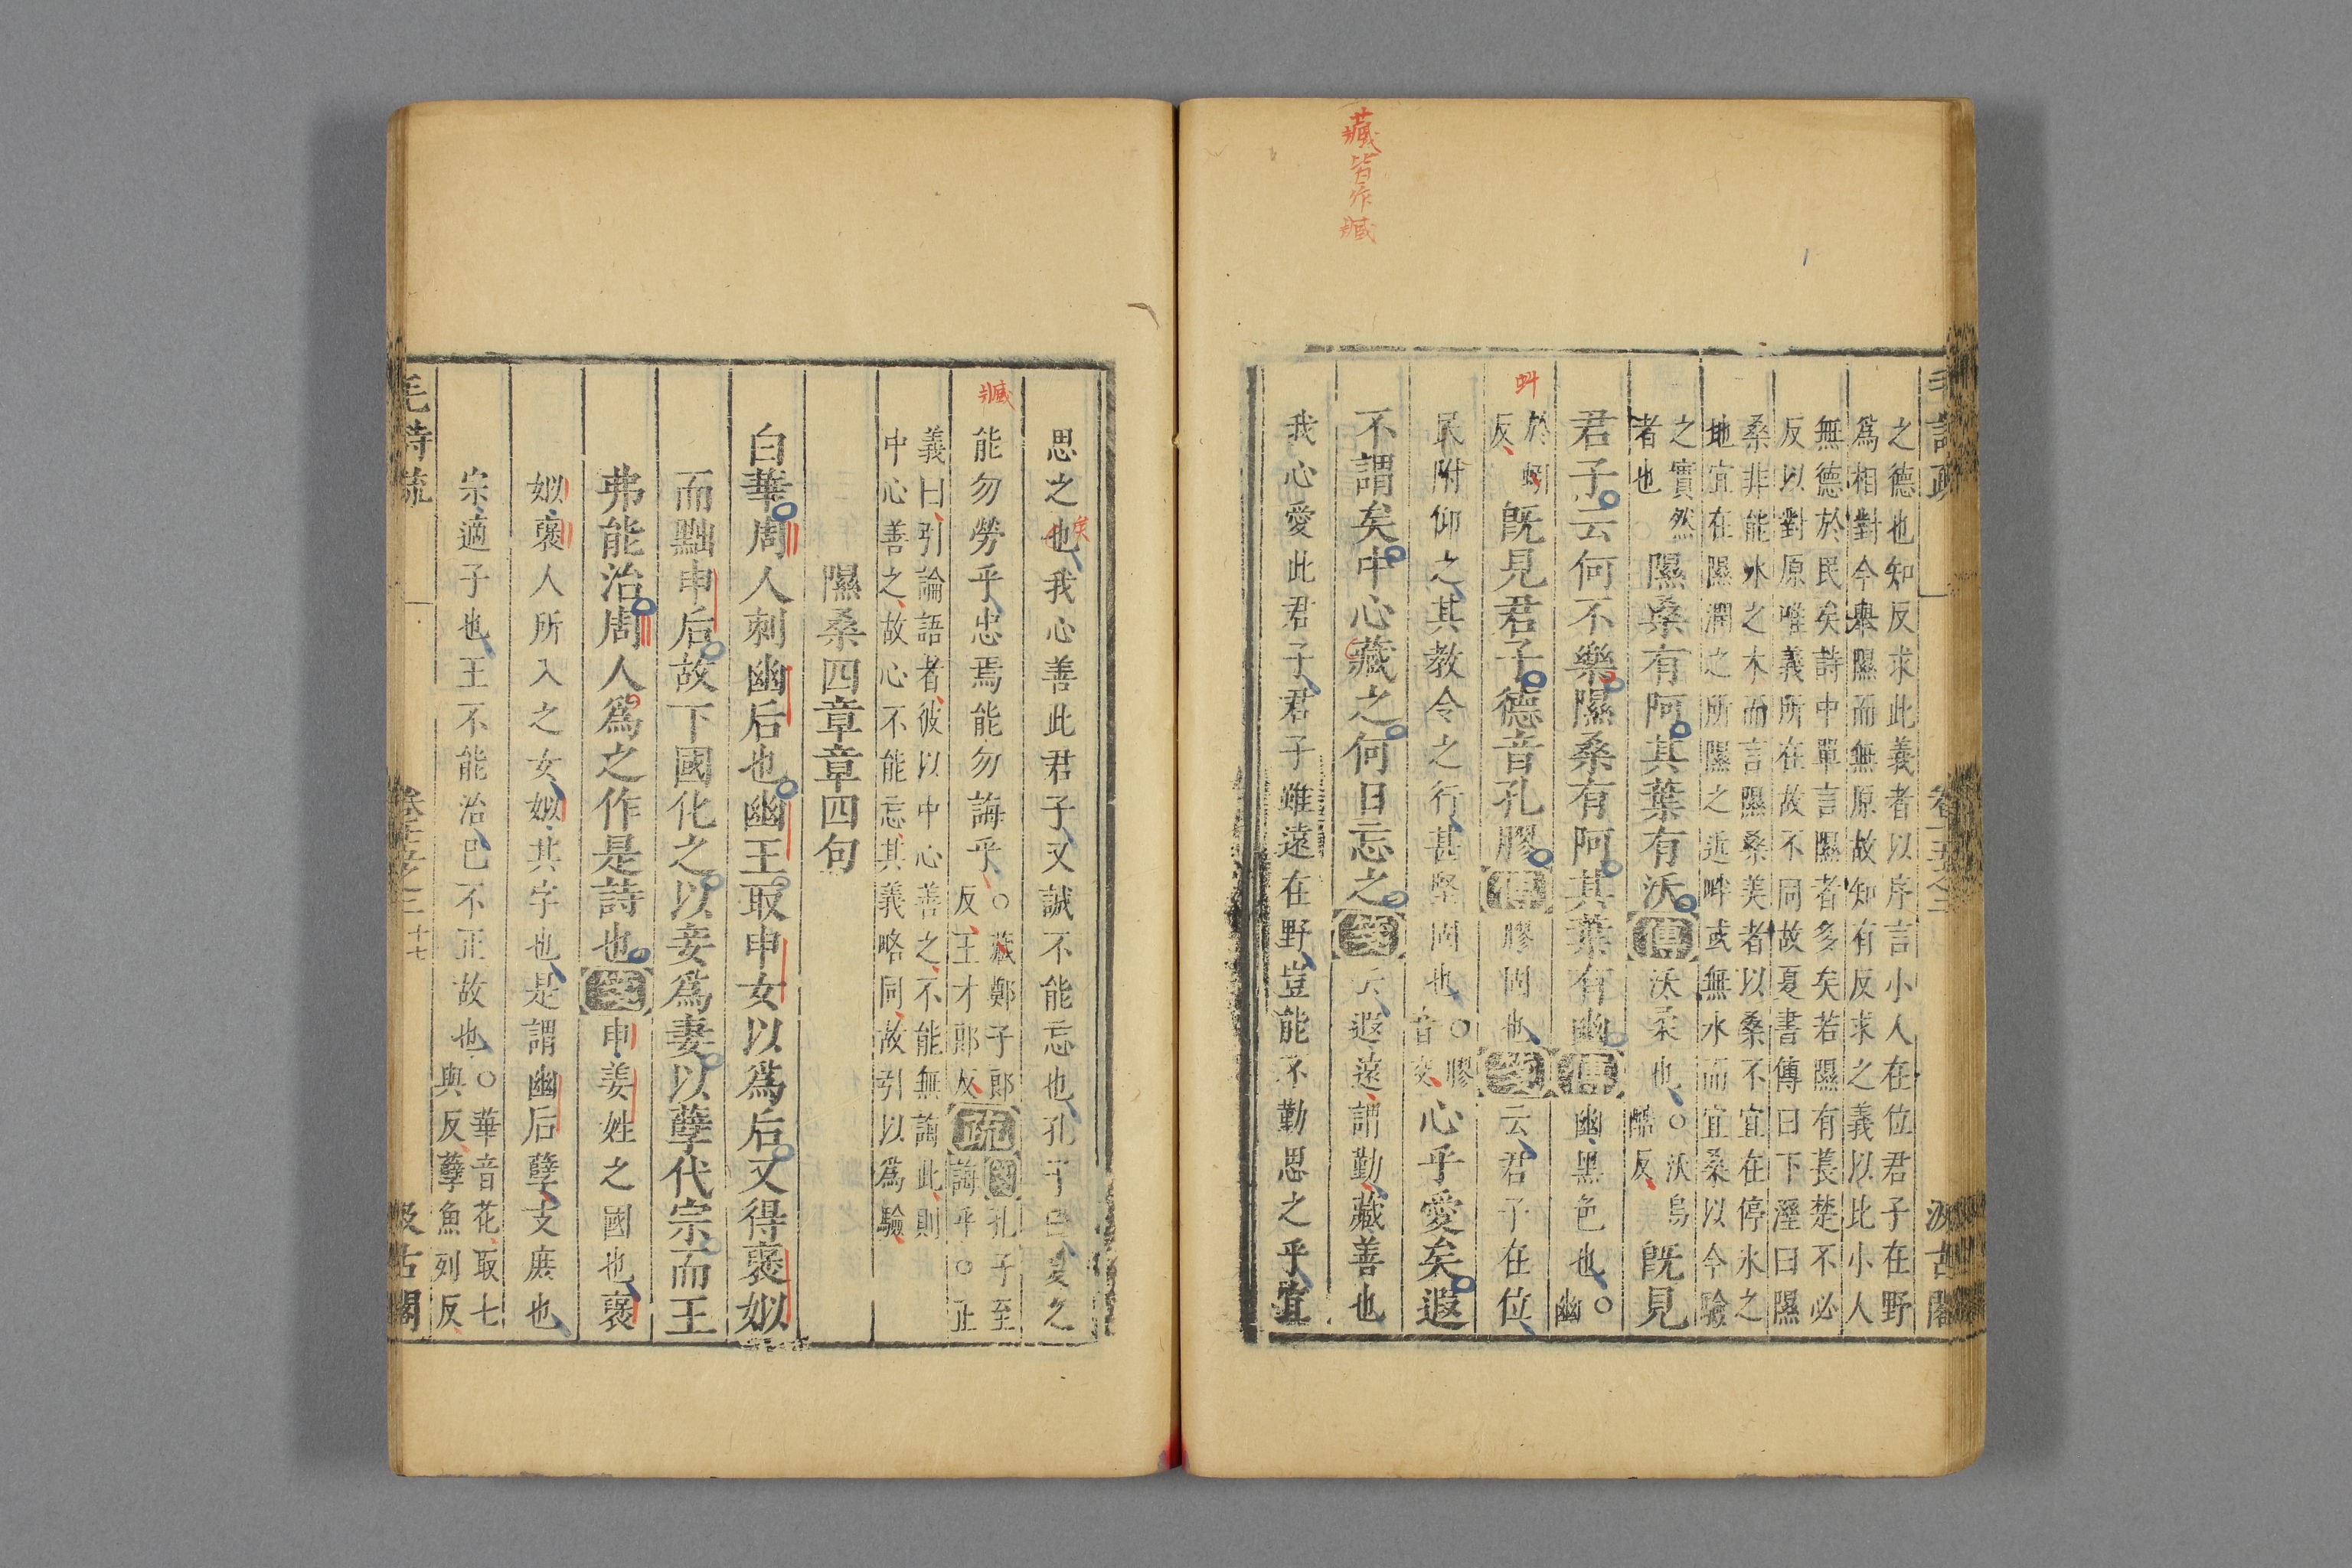 藏皆作臧
毛詩疏 卷十五之二 汲古閣
之德也知反求此義者以序言小人在位君子在野
爲相對今舉隰而無原故知有反求之義以此小人
無德於民矣詩中單言隰者多矣若隰有萇楚不必
反以對原唯義所在故不同故夏書傳曰下溼曰隰
桑非能水之木而言隰桑美者以桑不宜在停水之
地宜在隰潤之所隰之近畔或無水而宜桑以今驗
之實然
者也
隰桑有阿其葉有沃傳沃柔也○沃烏
酷反
既見
君子云何不樂隰桑有阿其葉有幽傳幽黑色也○
幽
蚪
於蚪
反
既見君子德音孔膠傳膠固也箋云君子在位
民附仰之其教令之行甚堅固也○膠
音交
心乎愛矣遐
不謂矣中心藏之何日忘之箋云遐遠謂勤藏善也
我心愛此君子君子雖遠在野豈能不勤思之乎宜
思之也我心善此君子又誠不能忘也孔子曰愛之
矣
臧
能勿勞乎忠焉能勿誨乎○藏鄭子郎
反王才郎反
疏箋孔子至
誨乎○正
義曰引論語者彼以中心善之不能無誨此則
中心善之故心不能忘其義略同故引以爲驗
隰桑四章章四句
白華周人刺幽后也幽王取申女以爲后又得褒姒
而黜申后故下國化之以妾爲妻以孽代宗而王
弗能治周人爲之作是詩也箋申姜姓之國也褒
姒褒人所入之女姒其字也是謂幽后孽支庶也
宗適子也王不能治己不正故也○華音花取七
與反孽魚列反
毛詩疏 卷十五之二 十七 汲古閣